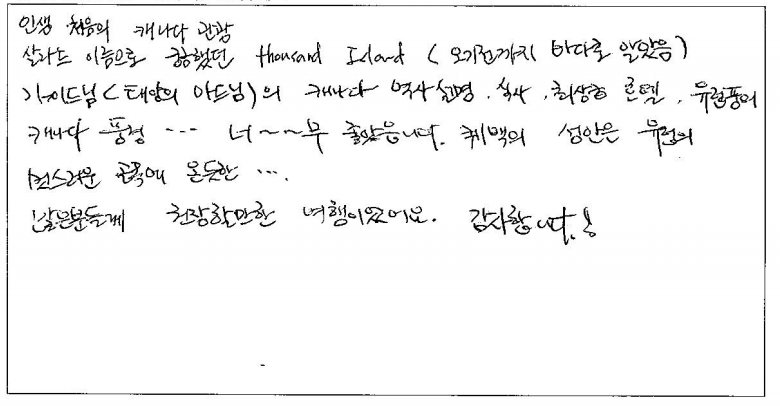 인생 처음의 캐나다 관광
샐러드 이름으로 궁금했던 Thousand Island (오기전까지 바다로 알았음)
가이드님(태양의 아드님)의 캐나다 역사설명, 식사, 최상급 호텔, 유럽풍의
캐나다 풍경 ... 너~~무 좋았습니다. 퀘백의 성안은 유럽의
골목에 온듯한 ...
많은분들께 권장할만한 여행이었어요. 감사합니다!